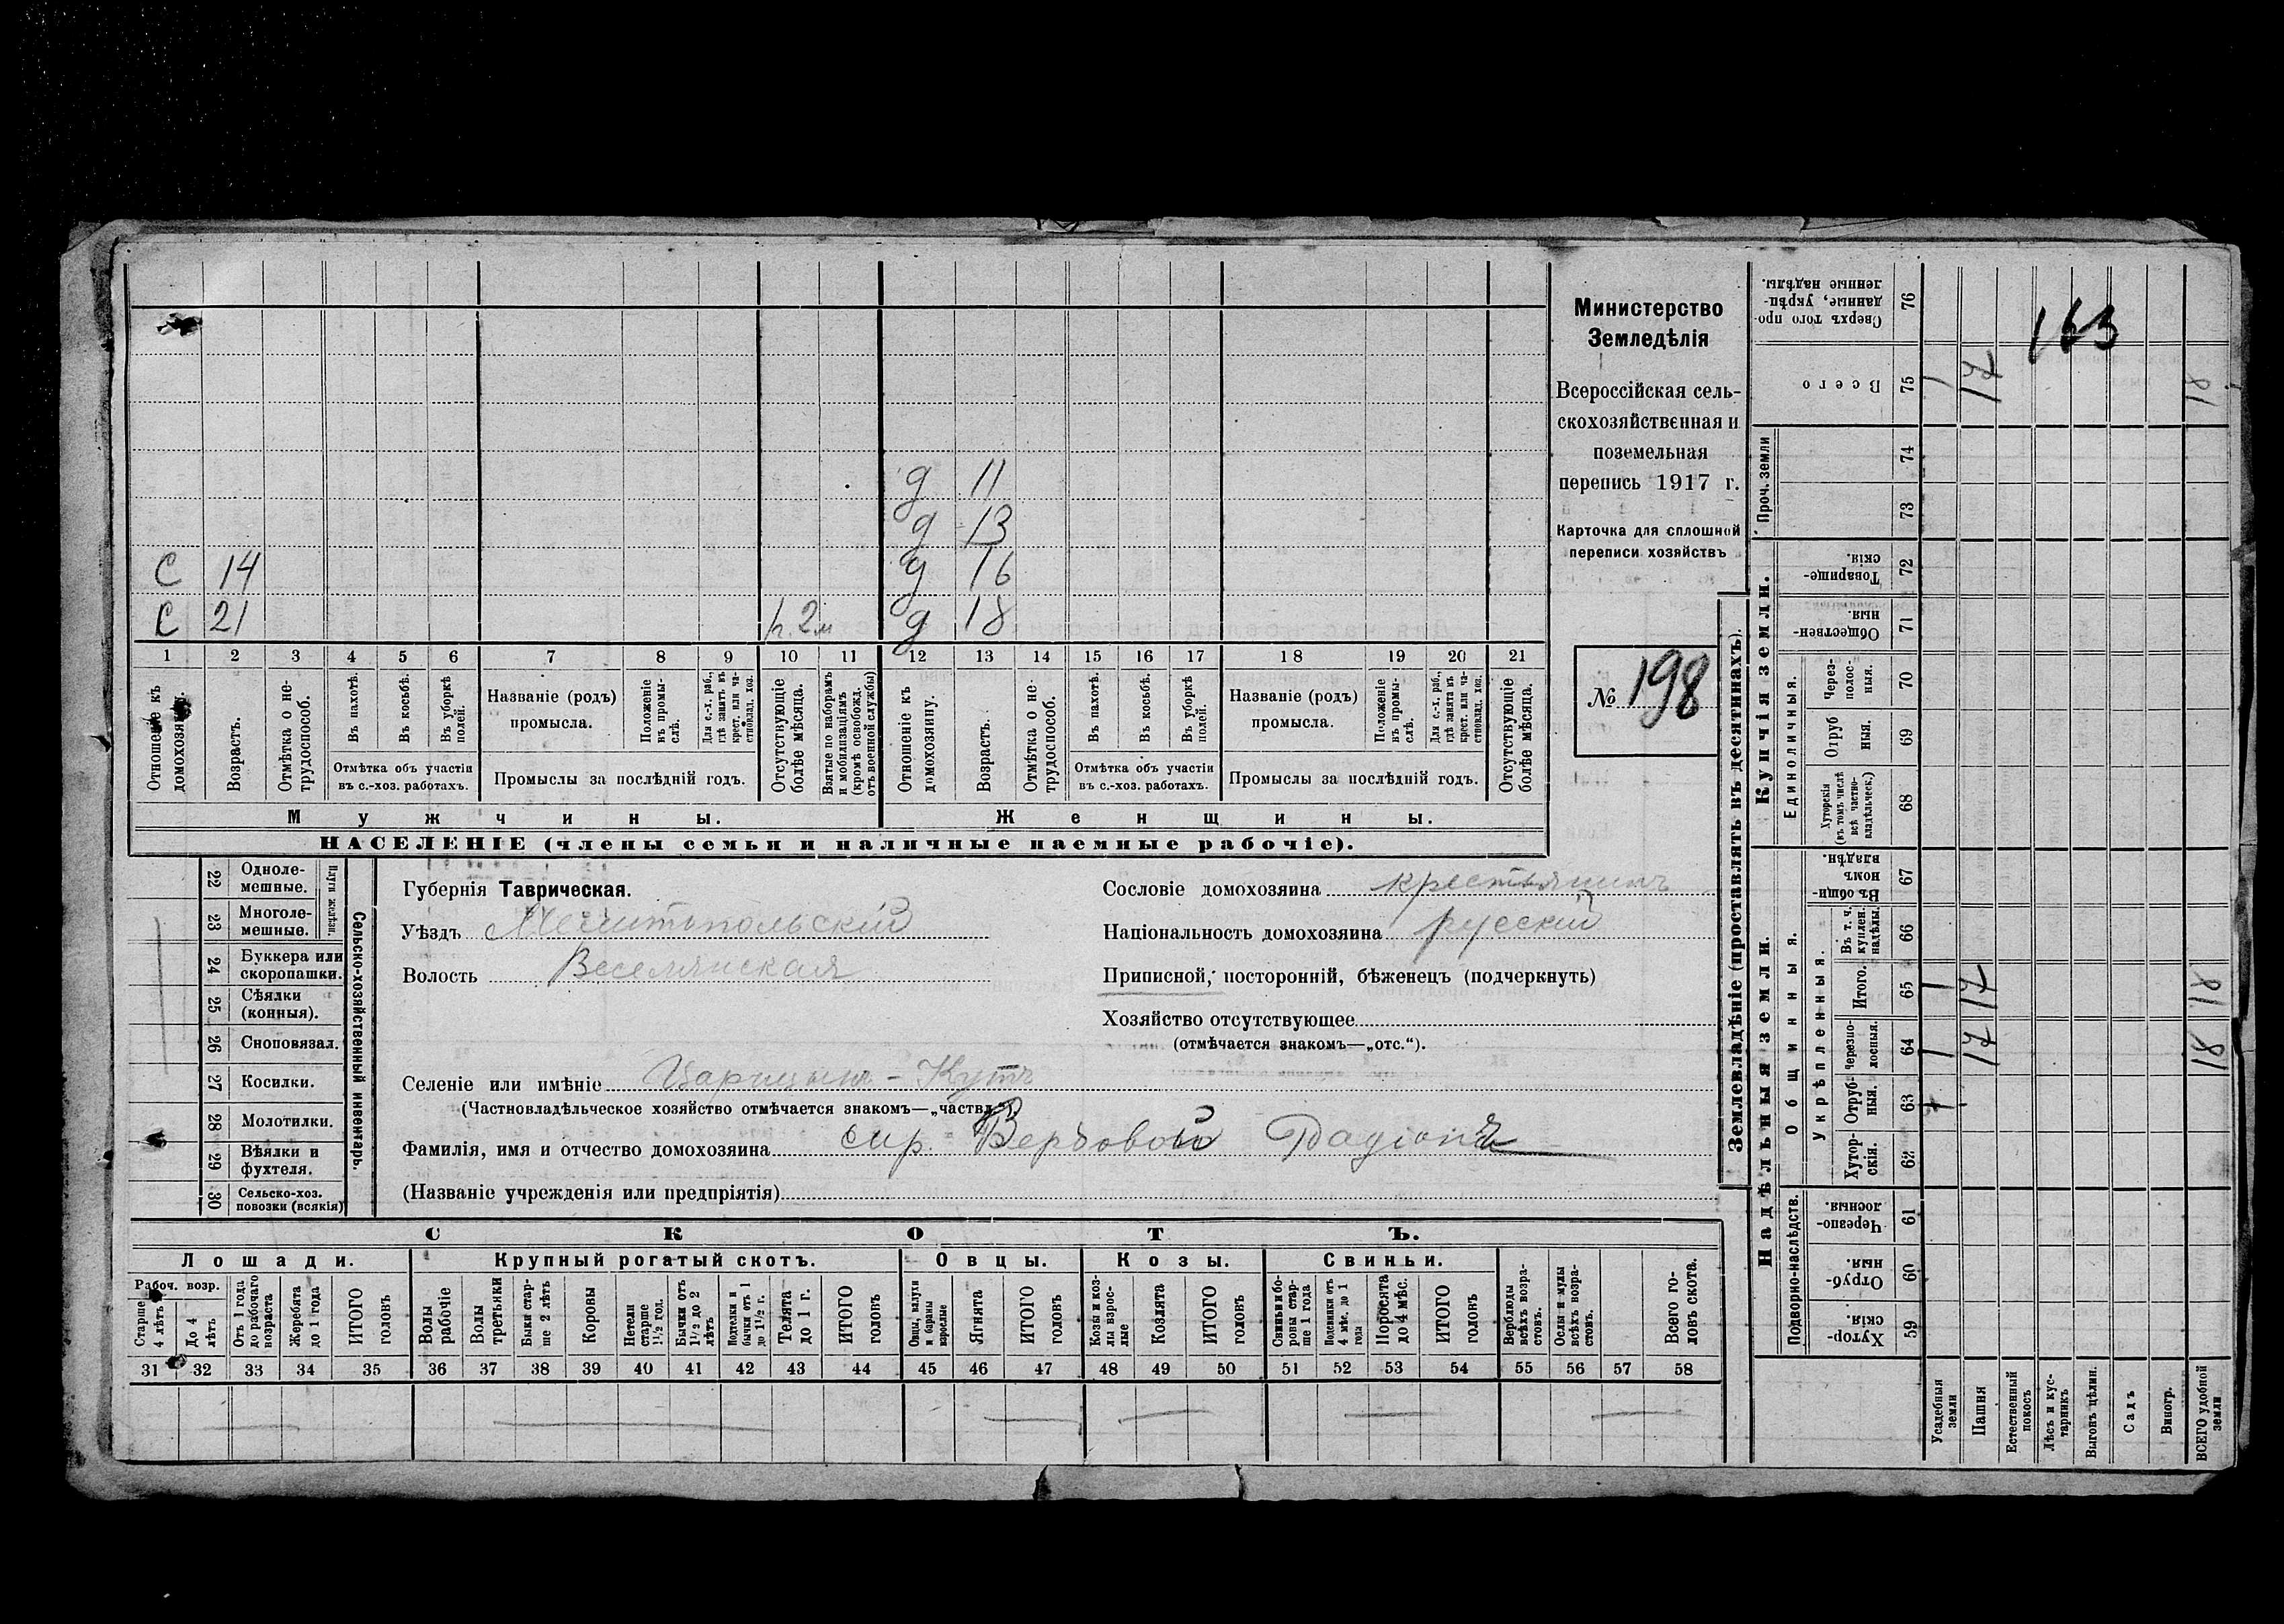 Министерство
Земледѣлія
Всероссійская сель-
скохозяйственная и
поземельная
перепись 1917 г.
Карточка для сплошной
переписи хозяйствъ
№ 198
163
д 11
д 13
С 14 д 16
С 21 д 18
1 2 3 4 5 6 7 8 9 10 11 12 13 14 15 16 17 18 19 20 21
Отношеніе къ домохозяину.
Возрастъ.
Отмѣтка о не-трудоспособ.
Въ пахотѣ.
Въ косьбѣ.
Въ уборкѣ полей.
Отмѣтка объ участіи
въ с.-хоз. работахъ.
Названіе (родъ)
промысла.
Положеніе въ промы-слѣ.
Для с.-х. раб., гдѣ занятъ въ крест. или ча-стновлад. хоз.
Промыслы за послѣдній годъ.
Отсутствующіе болѣе мѣсяца.
Взятые по наборамъ и мобилизаціямъ (кромѣ освобожд. отъ военной службы)
Отношеніе къ домохозяину.
Возрастъ.
Отмѣтка о не-трудоспособ.
Въ пахотѣ.
Въ косьбѣ.
Въ уборкѣ полей.
Отмѣтка объ участіи
въ с.-хоз. работахъ.
Названіе (родъ)
промысла.
Положеніе въ промы-слѣ.
Для с.-х. раб., гдѣ занята въ крест. или ча-стновлад. хоз.
Промыслы за послѣдній годъ.
Отсутствующіе болѣе мѣсяца.
Мужчины. Женщины.
НАСЕЛЕНІЕ (члены семьи и наличные наемные рабочіе).
22 Одноле-мешные.
23 Многоле-мешные.
Плуги желѣзн.
24 Буккера или скоропашки.
25 Сѣялки (конныя).
26 Сноповязал.
27 Косилки.
28 Молотилки.
29 Вѣялки и фухтеля.
30 Сельско-хоз. повозки (всякія)
Сельско-хозяйственный инвентарь.
Губернія Таврическая.
Уѣздъ Мелитопольскій
Волость Веселянская
Сословіе домохозяина крестьянинъ
Національность домохозяина русскій
Приписной, посторонній, бѣженецъ (подчеркнуть)
Хозяйство отсутствующее
(отмѣчается знакомъ—„отс.“).
Селеніе или имѣніе Царицынъ-Кутъ
(Частновладѣльческое хозяйство отмѣчается знакомъ—„частвл.“)
Фамилія, имя и отчество домохозяина сир. Верховой
(Названіе учрежденія или предпріятія)
СКОТЪ.
Лошади. Крупный рогатый скотъ. Овцы. Козы. Свиньи.
Рабоч. возр.
Старше 4 лѣтъ
До 4 лѣтъ
Отъ 1 года до рабочаго возраста
Жеребята до 1 года
ИТОГО головъ
Волы рабочіе
Волы третьяки
Быки стар-ше 2 лѣтъ
Коровы
Нетели старше 1½ год.
Бычки отъ 1½ до 2 лѣтъ
Подтелки и бычки отъ 1 до 1½ г.
Телята до 1 г.
ИТОГО головъ
Овцы, валухи и бараны взрослые
Ягнята
ИТОГО головъ
Козы и коз-лы взрос-лые
Козлята
ИТОГО головъ
Свиньи и бо-ровы стар-ше 1 года
Подсвинки отъ 4 мѣс. до 1 года
Поросята до 4 мѣс.
ИТОГО головъ
Верблюды всѣхъ возра-стовъ.
Ослы и мулы всѣхъ возра-стовъ.
Всего го-ловъ скота.
31 32 33 34 35 36 37 38 39 40 41 42 43 44 45 46 47 48 49 50 51 52 53 54 55 56 57 58
Землевладѣніе (проставлять въ десятинахъ).
Надѣльныя земли.
Купчія земли.
Проч. земли
Подворно-наслѣдств.
Общинныя.
Укрѣпленныя.
Единоличныя.
59 Хутор-скія.
60 Отруб-ныя.
61 Черезпо-лосныя.
62 Хутор-скія.
63 Отруб-ныя.
64 Черезпо-лосныя. 1 17 18
65 Итого. 1 17 18
66 Въ т. ч. куплен. надѣлы.
67 Въ общин-номъ владѣн.
68 Хуторскія (въ томъ числѣ всѣ частно-владѣльческ.)
69 Отруб ныя.
70 Через-полос-ныя.
71 Обществен-ныя.
72 Товарище-скія.
73
74
75 Всего 1 17 18
76 Сверхъ того про-данные, укрѣп-ленные надѣлы.
Усадебныя земли
Пашня
Естественный покосъ
Лѣсъ и кус-тарникъ
Выгонъ цѣлин.
Садъ
Виногр.
ВСЕГО удобной земли